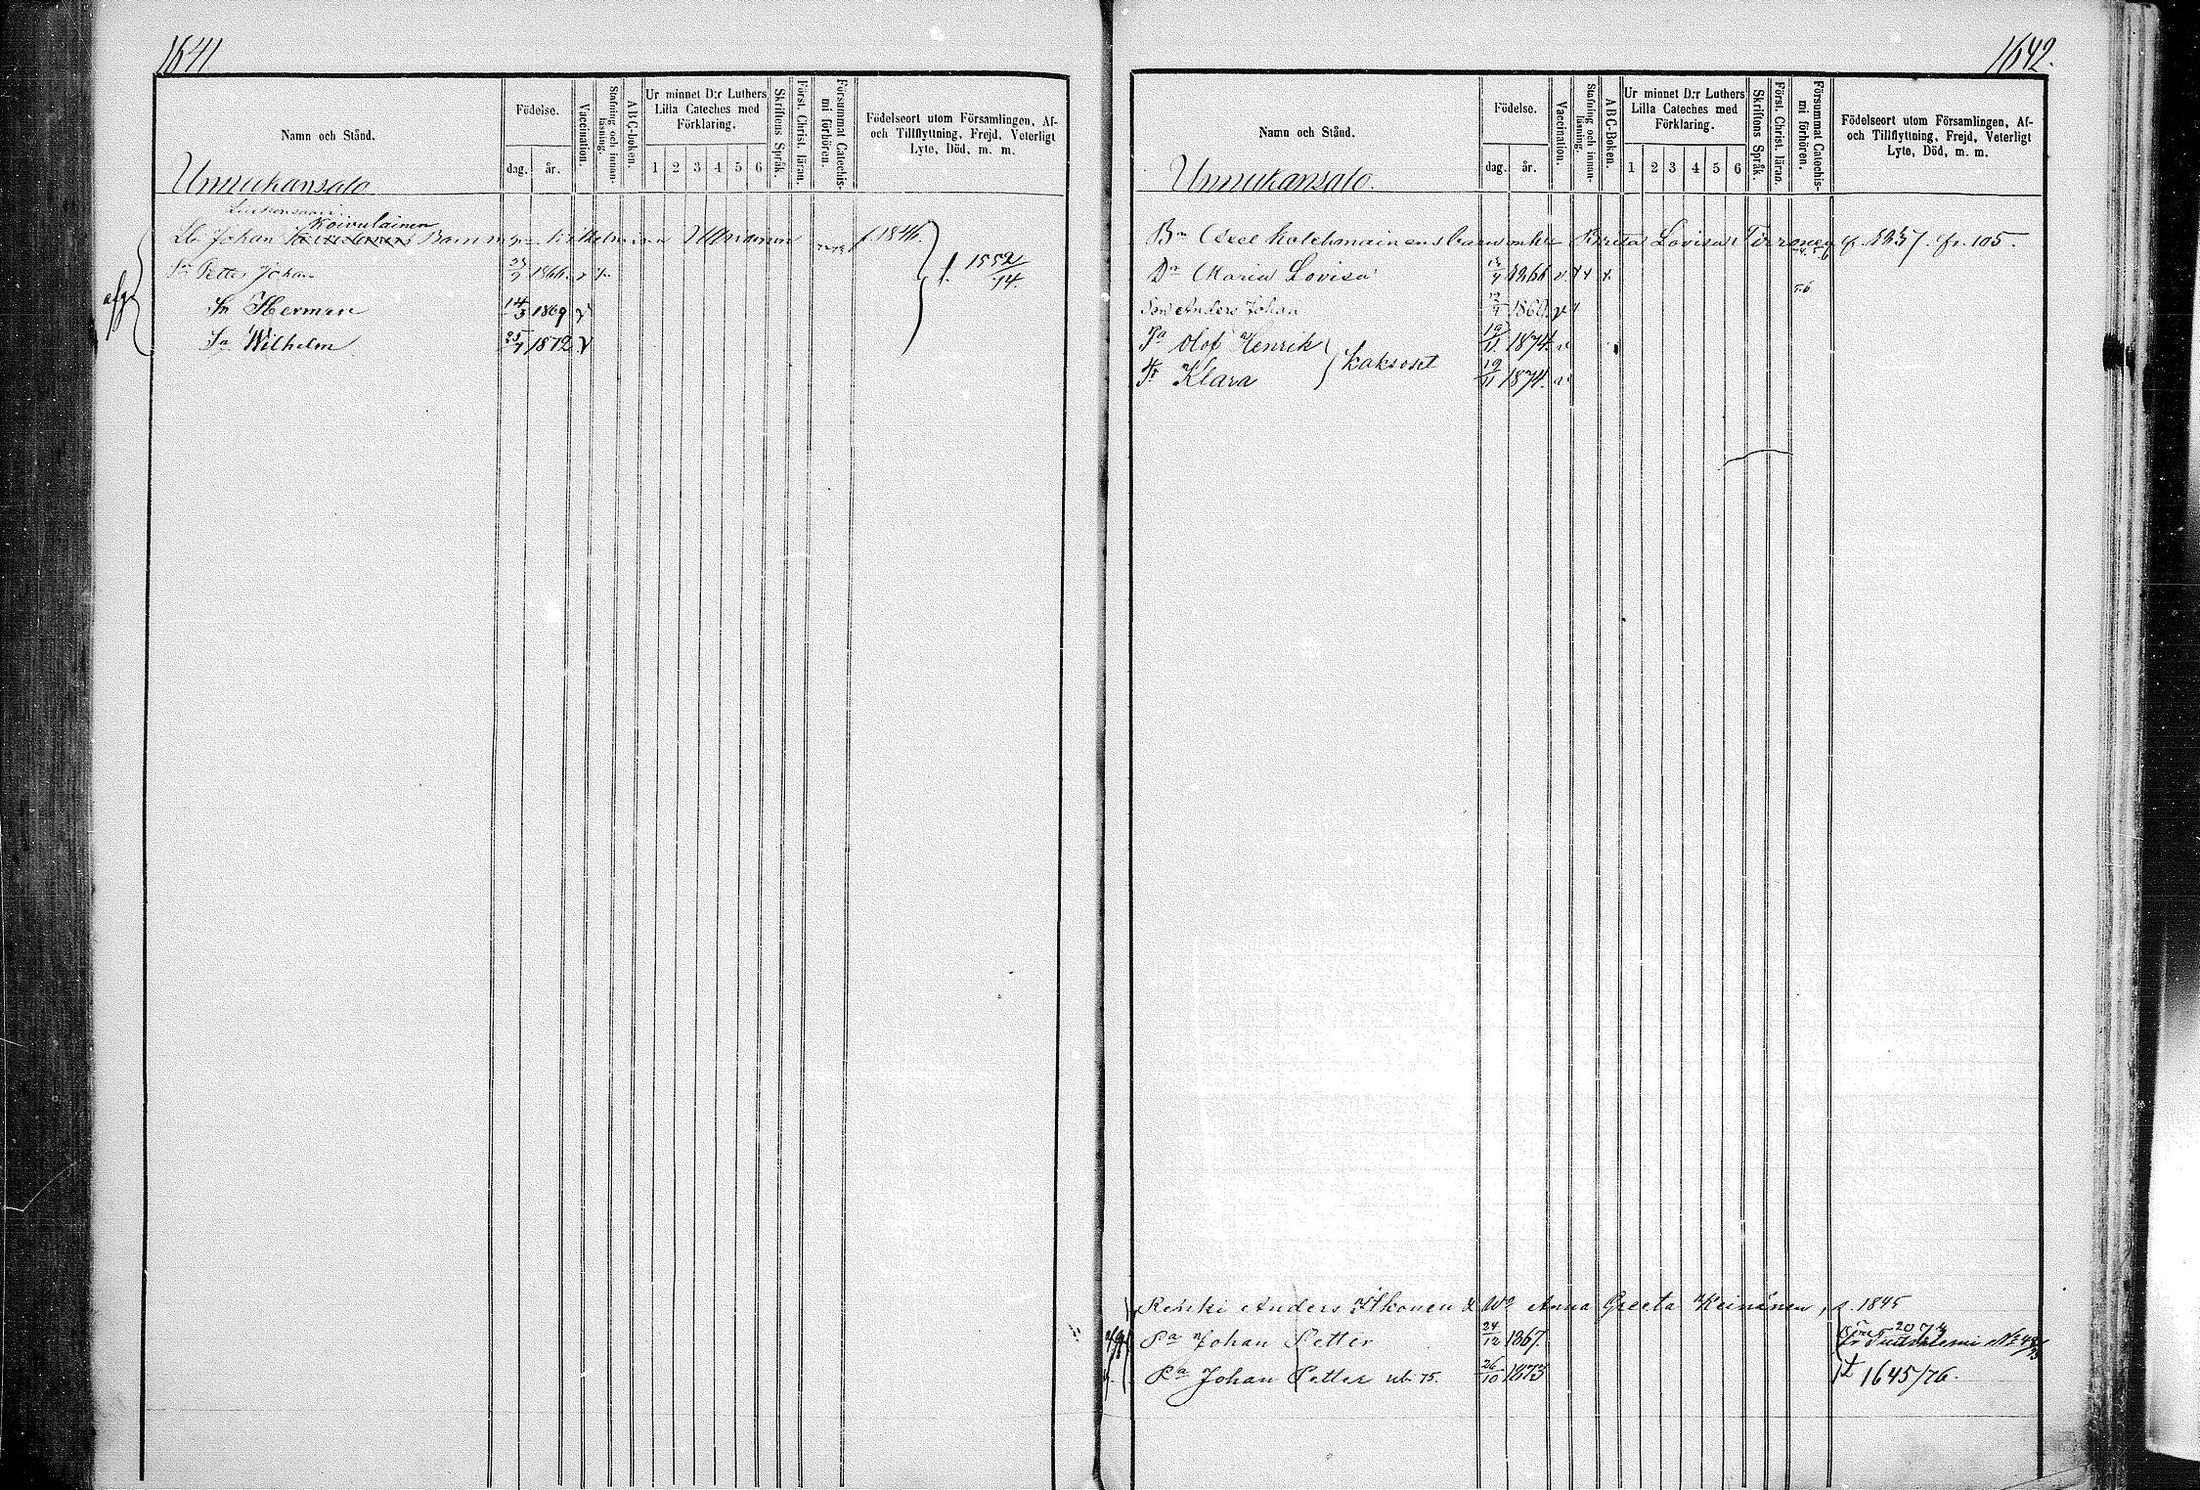 1641
Namn och Stånd.
Födelse.
dag. år.
Vaccination.
Stafning och innan-läsning.
ABC-boken.
Ur minnet D:r Luthers Lilla Cateches med Förklaring.
1 2 3 4 5 6
Skriftens Språk.
Först. Christ. läran.
Försummat Catechis-mi förhören.
Födelseort utom Församlingen, Af- och Tillflyttning, Frejd, Veterligt Lyte, Död, m. m.
Unnukansalo
Koivulainen
Johan Barn Wilhelmina f. 1846.
Sn Petter Johan 1866
Sn Herman 14/3 1869 v
Sn Wilhelm 25/7 1872 v
f. 1552/74.
afg
1642.
Namn och Stånd.
Födelse.
dag. år.
Vaccination.
Stafning och innan-läsning.
ABC-Boken.
Ur minnet D:r Luthers Lilla Cateches med Förklaring.
1 2 3 4 5 6
Skriftens Språk.
Först. Christ. läran.
Försummat Catechis-mi förhören.
Födelseort utom Församlingen, Af- och Tillflyttning, Frejd, Veterligt Lyte, Död, m. m.
Unnukansalo.
Bn Axel Kolehmainens barn Brita Lovisa Tirronen 105.
Dr Maria Lovisa 1866
Son Anders Johan
Pa Olof Henrik 19/11 1874.
Tr Klara 19/11 1874.
kaksoset
Renki Anders Itkonen & Wo Anna Greeta Keinänen, s. 1845
Pa Johan Petter 24/12 1867.
Pa Johan Petter 75. 26/10 1873
1645/76.